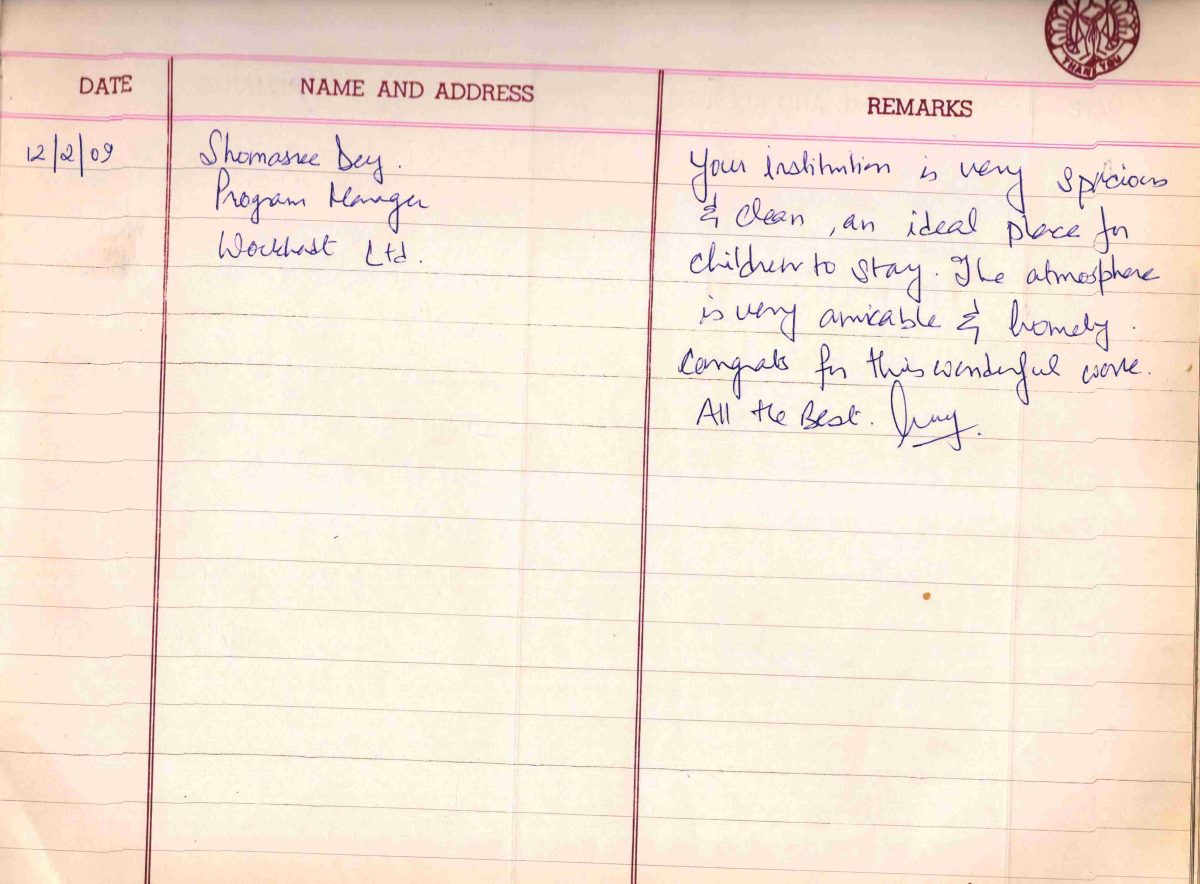 THANK YOU
DATE
NAME AND ADDRESS
REMARKS
12/2/09
Shomasree Dey.
Program Manager
Wockhast Ltd.
Your institution is very spicious
& clean, an ideal place for
children to stay. The atmosphere
is very amicable & homely.
Congrats for this wonderful work.
All the Best.